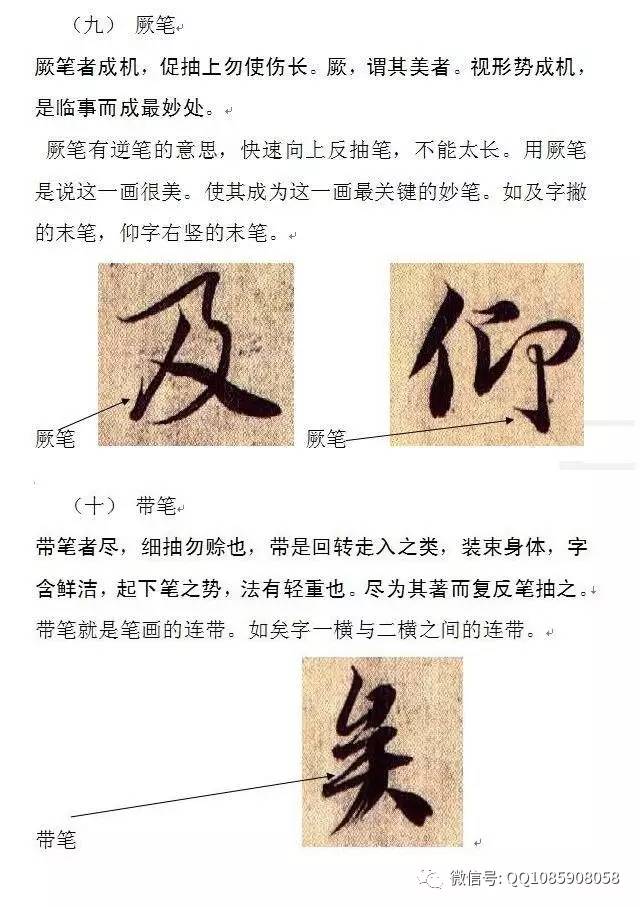 （九） 厥笔
厥笔者成机，促抽上勿使伤长。厥，谓其美者。视形势成机，
是临事而成最妙处。
厥笔有逆笔的意思，快速向上反抽笔，不能太长。用厥笔
是说这一画很美。使其成为这一画最关键的妙笔。如及字撇
的末笔，仰字右竖的末笔。
及 仰
厥笔 厥笔
（十） 带笔
带笔者尽，细抽勿赊也，带是回转走入之类，装束身体，字
含鲜洁，起下笔之势，法有轻重也。尽为其著而复反笔抽之。
带笔就是笔画的连带。如矣字一横与二横之间的连带。
矣
带笔
微信号: QQ1085908058